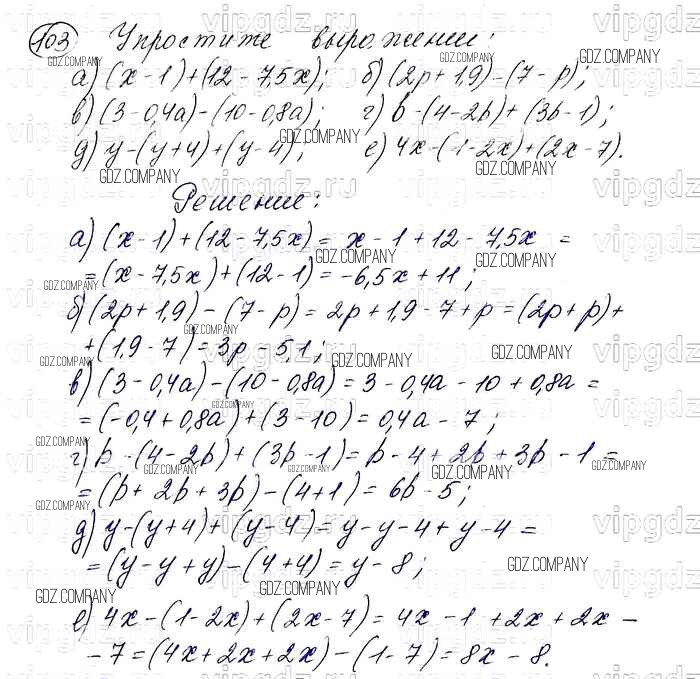 103 Упростите выражении:
а) (x - 1) + (12 - 7,5x); б) (2p + 1,9) - (7 - p);
в) (3 - 0,4a) - (10 - 0,8a); г) b - (4 - 2b) + (3b - 1);
д) y - (y + 4) + (y - 4); е) 4x - (1 - 2x) + (2x - 7).
Решение:
а) (x - 1) + (12 - 7,5x) = x - 1 + 12 - 7,5x =
= (x - 7,5x) + (12 - 1) = -6,5x + 11;
б) (2p + 1,9) - (7 - p) = 2p + 1,9 - 7 + p = (2p + p) +
+ (1,9 - 7) = 3p - 5,1;
в) (3 - 0,4a) - (10 - 0,8a) = 3 - 0,4a - 10 + 0,8a =
= (-0,4 + 0,8a) + (3 - 10) = 0,4a - 7;
г) b - (4 - 2b) + (3b - 1) = b - 4 + 2b + 3b - 1 =
= (b + 2b + 3b) - (4 + 1) = 6b - 5;
д) y - (y + 4) + (y - 4) = y - y - 4 + y - 4 =
= (y - y + y) - (4 + 4) = y - 8;
е) 4x - (1 - 2x) + (2x - 7) = 4x - 1 + 2x + 2x -
- 7 = (4x + 2x + 2x) - (1 - 7) = 8x - 8.
GDZ.COMPANY
vipgdz.ru